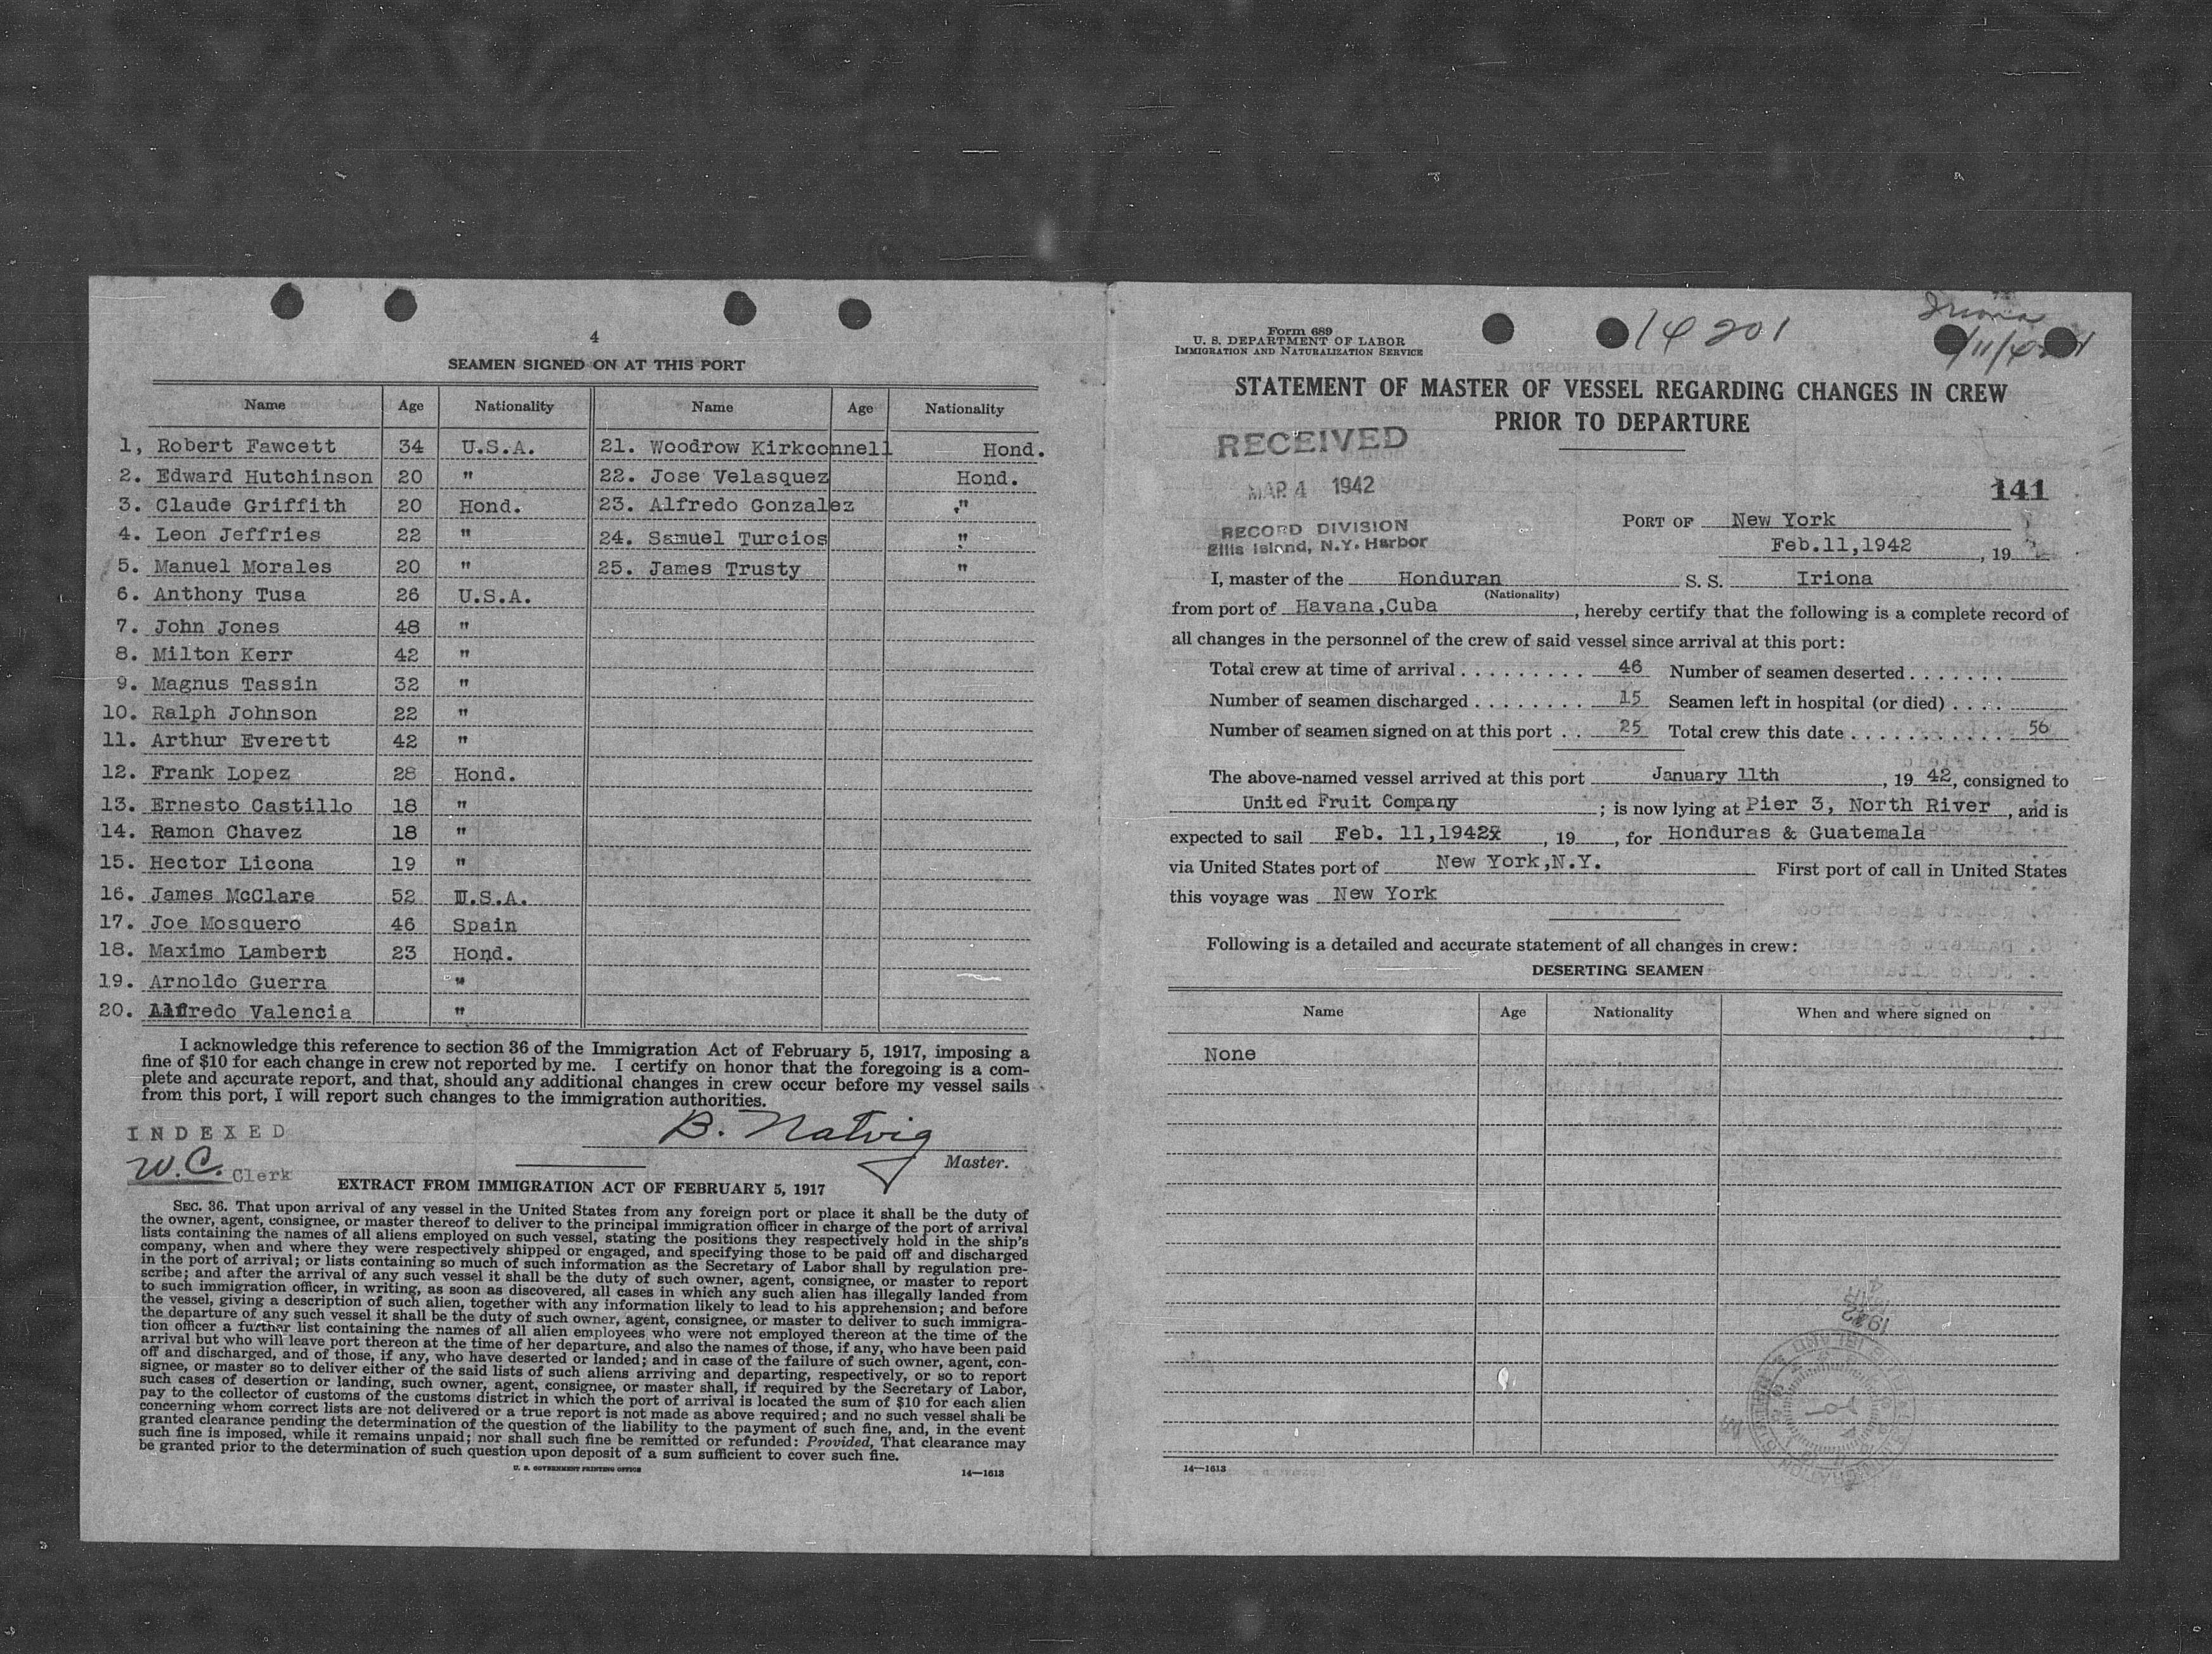 4
SEAMEN SIGNED ON AT THIS PORT
Name Age Nationality Name Age Nationality
1, Robert Fawcett 34 U.S.A. 21. Woodrow Kirkconnell Hond.
2. Edward Hutchinson 20 " 22. Jose Velasquez Hond.
3. Claude Griffith 20 Hond. 23. Alfredo Gonzalez "
4. Leon Jeffries 22 " 24. Samuel Turcios "
5. Manuel Morales 20 " 25. James Trusty "
6. Anthony Tusa 26 U.S.A.
7. John Jones 48 "
8. Milton Kerr 42 "
9. Magnus Tassin 32 "
10. Ralph Johnson 22 "
11. Arthur Everett 42 "
12. Frank Lopez 28 Hond.
13. Ernesto Castillo 18 "
14. Ramon Chavez 18 "
15. Hector Licona 19 "
16. James McClare 52 U.S.A.
17. Joe Mosquero 46 Spain
18. Maximo Lambert 23 Hond.
19. Arnoldo Guerra "
20. Alfredo Valencia "
I acknowledge this reference to section 36 of the Immigration Act of February 5, 1917, imposing a
fine of $10 for each change in crew not reported by me. I certify on honor that the foregoing is a com-
plete and accurate report, and that, should any additional changes in crew occur before my vessel sails
from this port, I will report such changes to the immigration authorities.
B. Natvig
Master.
INDEXED
W.C. Clerk
EXTRACT FROM IMMIGRATION ACT OF FEBRUARY 5, 1917
SEC. 36. That upon arrival of any vessel in the United States from any foreign port or place it shall be the duty of
the owner, agent, consignee, or master thereof to deliver to the principal immigration officer in charge of the port of arrival
lists containing the names of all aliens employed on such vessel, stating the positions they respectively hold in the ship's
company, when and where they were respectively shipped or engaged, and specifying those to be paid off and discharged
in the port of arrival; or lists containing so much of such information as the Secretary of Labor shall by regulation pre-
scribe; and after the arrival of any such vessel it shall be the duty of such owner, agent, consignee, or master to report
to such immigration officer, in writing, as soon as discovered, all cases in which any such alien has illegally landed from
the vessel, giving a description of such alien, together with any information likely to lead to his apprehension; and before
the departure of any such vessel it shall be the duty of such owner, agent, consignee, or master to deliver to such immigra-
tion officer a further list containing the names of all alien employees who were not employed thereon at the time of the
arrival but who will leave port thereon at the time of her departure, and also the names of those, if any, who have been paid
off and discharged, and of those, if any, who have deserted or landed; and in case of the failure of such owner, agent, con-
signee, or master so to deliver either of the said lists of such aliens arriving and departing, respectively, or so to report
such cases of desertion or landing, such owner, agent, consignee, or master shall, if required by the Secretary of Labor,
pay to the collector of customs of the customs district in which the port of arrival is located the sum of $10 for each alien
concerning whom correct lists are not delivered or a true report is not made as above required; and no such vessel shall be
granted clearance pending the determination of the question of the liability to the payment of such fine, and, in the event
such fine is imposed, while it remains unpaid; nor shall such fine be remitted or refunded: Provided, That clearance may
be granted prior to the determination of such question upon deposit of a sum sufficient to cover such fine.
U. S. GOVERNMENT PRINTING OFFICE 14—1613
Form 689
U. S. DEPARTMENT OF LABOR
IMMIGRATION AND NATURALIZATION SERVICE
14201
Iriona
STATEMENT OF MASTER OF VESSEL REGARDING CHANGES IN CREW
PRIOR TO DEPARTURE
RECEIVED
MAR 4 1942
RECORD DIVISION
Ellis Island, N.Y. Harbor
141
PORT OF New York
Feb.11,1942, 19
I, master of the Honduran S. S. Iriona
(Nationality)
from port of Havana,Cuba, hereby certify that the following is a complete record of
all changes in the personnel of the crew of said vessel since arrival at this port:
Total crew at time of arrival . . . . . . . . . 46 Number of seamen deserted . . . . . . .
Number of seamen discharged . . . . . . . . 15 Seamen left in hospital (or died) . . . .
Number of seamen signed on at this port . . 25 Total crew this date . . . . . . . . . . . . 56
The above-named vessel arrived at this port January 11th, 19 42, consigned to
United Fruit Company; is now lying at Pier 3, North River, and is
expected to sail Feb. 11,1942, 19, for Honduras & Guatemala
via United States port of New York,N.Y. First port of call in United States
this voyage was New York
Following is a detailed and accurate statement of all changes in crew:
DESERTING SEAMEN
Name Age Nationality When and where signed on
None
14—1613